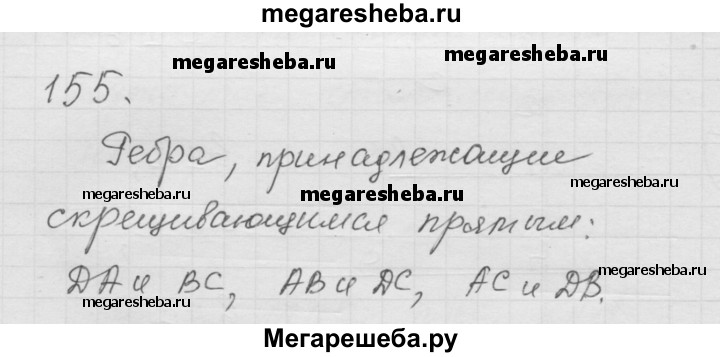 megaresheba.ru
megaresheba.ru
megaresheba.ru
155.
Ребра, принадлежащие
megaresheba.ru
megaresheba.ru
megaresheba.ru
скрещивающимся прямым:
megaresheba.ru
DA и BC, AB и DC, AC и DB.
megaresheba.ru
megaresheba.ru
Мегарешеба.ру